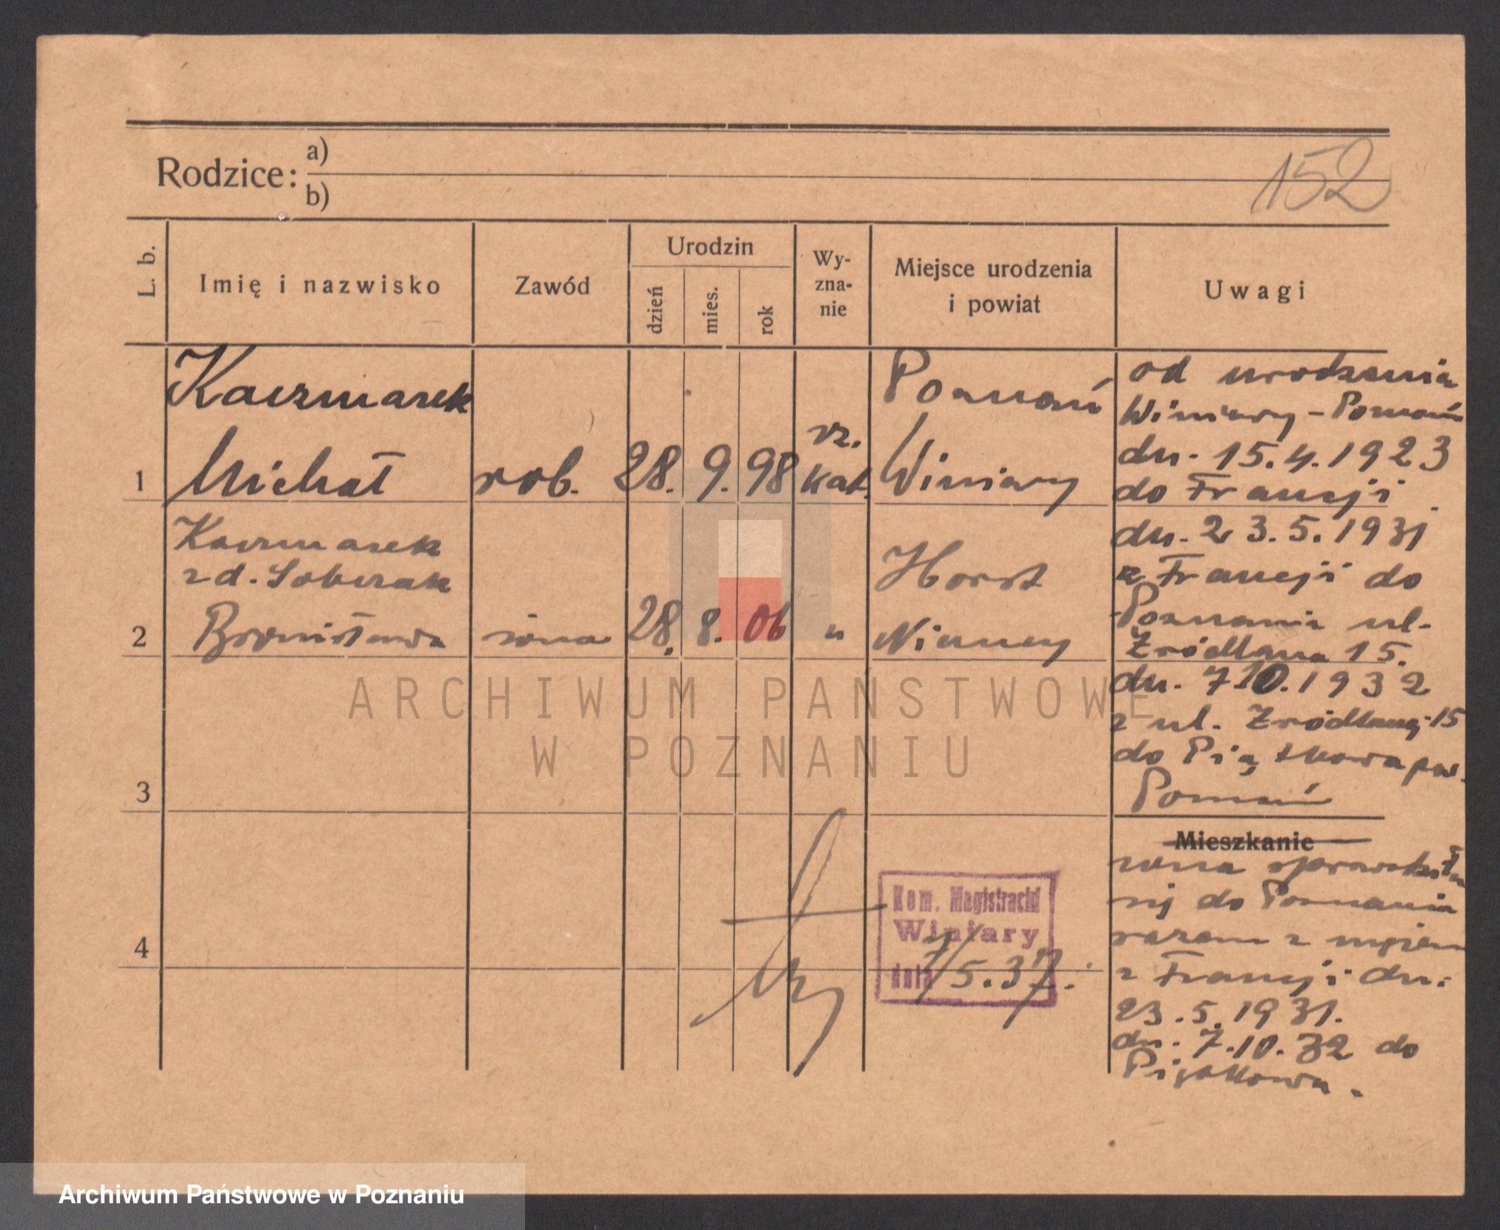 152
Rodzice: a)
b)
L. b.
Imię i nazwisko
Zawód
Urodzin
dzień
mies.
rok
Wy-
zna-
nie
Miejsce urodzenia
i powiat
Uwagi
1
Kaczmarek
Michał
rob.
28. 9. 98
rz.
kat.
Poznań
Winiary
2
Kaczmarek
z d. Soberak
Bronisława
żona
28. 8. 06
"
Horst
Niemcy
3
4
od urodzenia
Winiary - Poznań
dn. 15.4.1923
do Francji
dn. 23.5.1931
z Francji do
Poznania ul.
Źródlana 15.
dn. 7.10.1932
z ul. Źródlanej 15
do Piątkowa pow.
Poznań
Mieszkanie
żona sprowadziła
się do Poznania
razem z mężem
z Francji dn.
23.5.1931.
dn. 7.10.32 do
Piątkowa.
Kom. Magistracki
Winiary
dnia 7/5.37.
ARCHIWUM PAŃSTWOWE
W POZNANIU
Archiwum Państwowe w Poznaniu